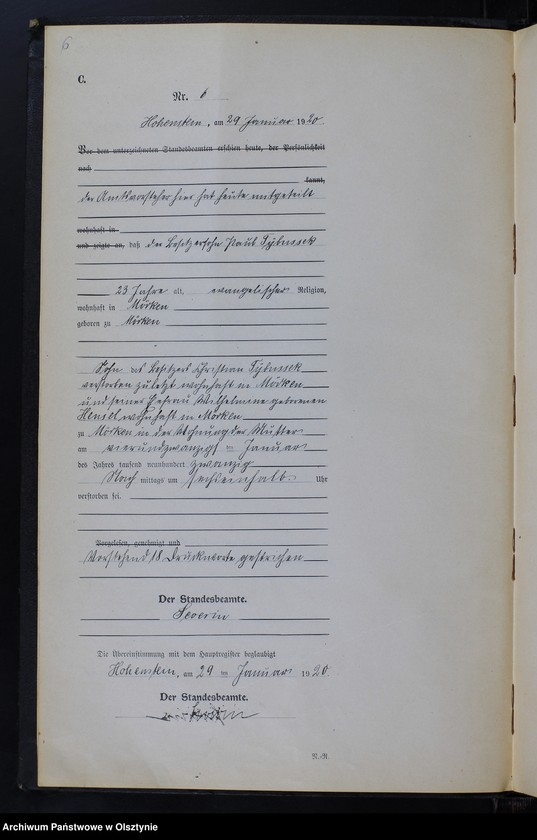 6
C.
Nr. 6
Hohenstein, am 29 Januar 1920
Vor dem unterzeichneten Standesbeamten erschien heute, der Persönlichkeit
nach
kannt,
der Amtsvorsteher hier hat heute mitgeteilt
wohnhaft in
und zeigte an, daß der Besitzersohn Paul Tybussek
23 Jahre alt, evangelischer Religion,
wohnhaft in Mörken
geboren zu Mörken
Sohn des Besitzers Christian Tybussek
verstorben zuletzt wohnhaft in Mörken
und seiner Ehefrau Wilhelmine geborenen
Hensel wohnhaft in Mörken
zu Mörken in der Wohnung der Mutter
am vierundzwanzigst en Januar
des Jahres tausend neunhundert zwanzig
Nach mittags um sechseinhalb Uhr
verstorben sei.
Vorgelesen, genehmigt und
Vorstehend 18 Druckworte gestrichen
Der Standesbeamte.
Severin
Die Übereinstimmung mit dem Hauptregister beglaubigt
Hohenstein, am 29 ten Januar 1920
Der Standesbeamte.
N.-R.
Archiwum Państwowe w Olsztynie